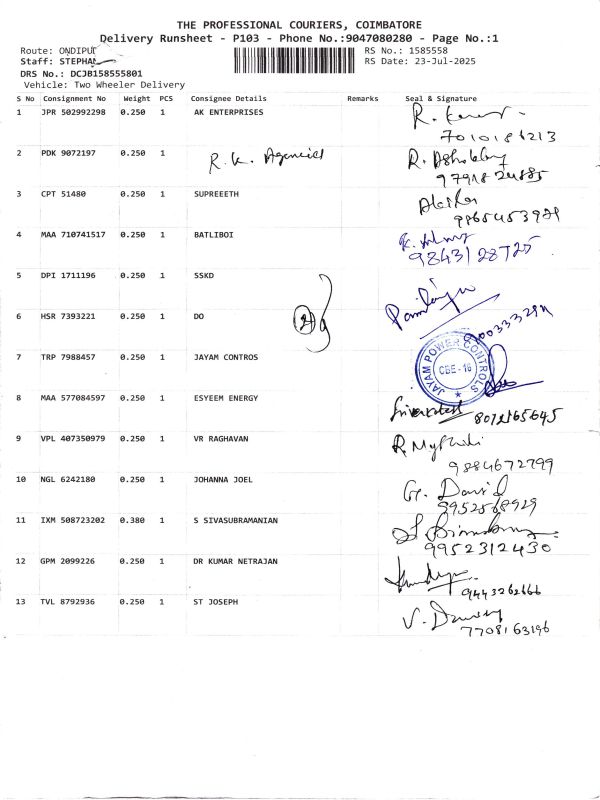 THE PROFESSIONAL COURIERS, COIMBATORE
Delivery Runsheet - P103 - Phone No.:9047080280 - Page No.:1
Route: ONDIPUT
RS No.: 1585558
Staff: STEPHAN
RS Date: 23-Jul-2025
DRS No.: DCJB158555801
Vehicle: Two Wheeler Delivery
S No Consignment No Weight PCS Consignee Details Remarks Seal & Signature
1 JPR 502992298 0.250 1 AK ENTERPRISES R.
7010186213
2 PDK 9072197 0.250 1 R. K. Agencies R.
9791824885
3 CPT 51480 0.250 1 SUPREEETH
9865453921
4 MAA 710741517 0.250 1 BATLIBOI
9843128725
5 DPI 1711196 0.250 1 SSKD
6 HSR 7393221 0.250 1 DO
7 TRP 7988457 0.250 1 JAYAM CONTROS JAYAM POWER CONTROLS
CBE-16
8 MAA 577084597 0.250 1 ESYEEM ENERGY 8072165645
9 VPL 407350979 0.250 1 VR RAGHAVAN R.
9884672799
10 NGL 6242180 0.250 1 JOHANNA JOEL G. David
9952568929
11 IXM 508723202 0.380 1 S SIVASUBRAMANIAN
9952312430
12 GPM 2099226 0.250 1 DR KUMAR NETRAJAN
9443262666
13 TVL 8792936 0.250 1 ST JOSEPH V.
7708163196